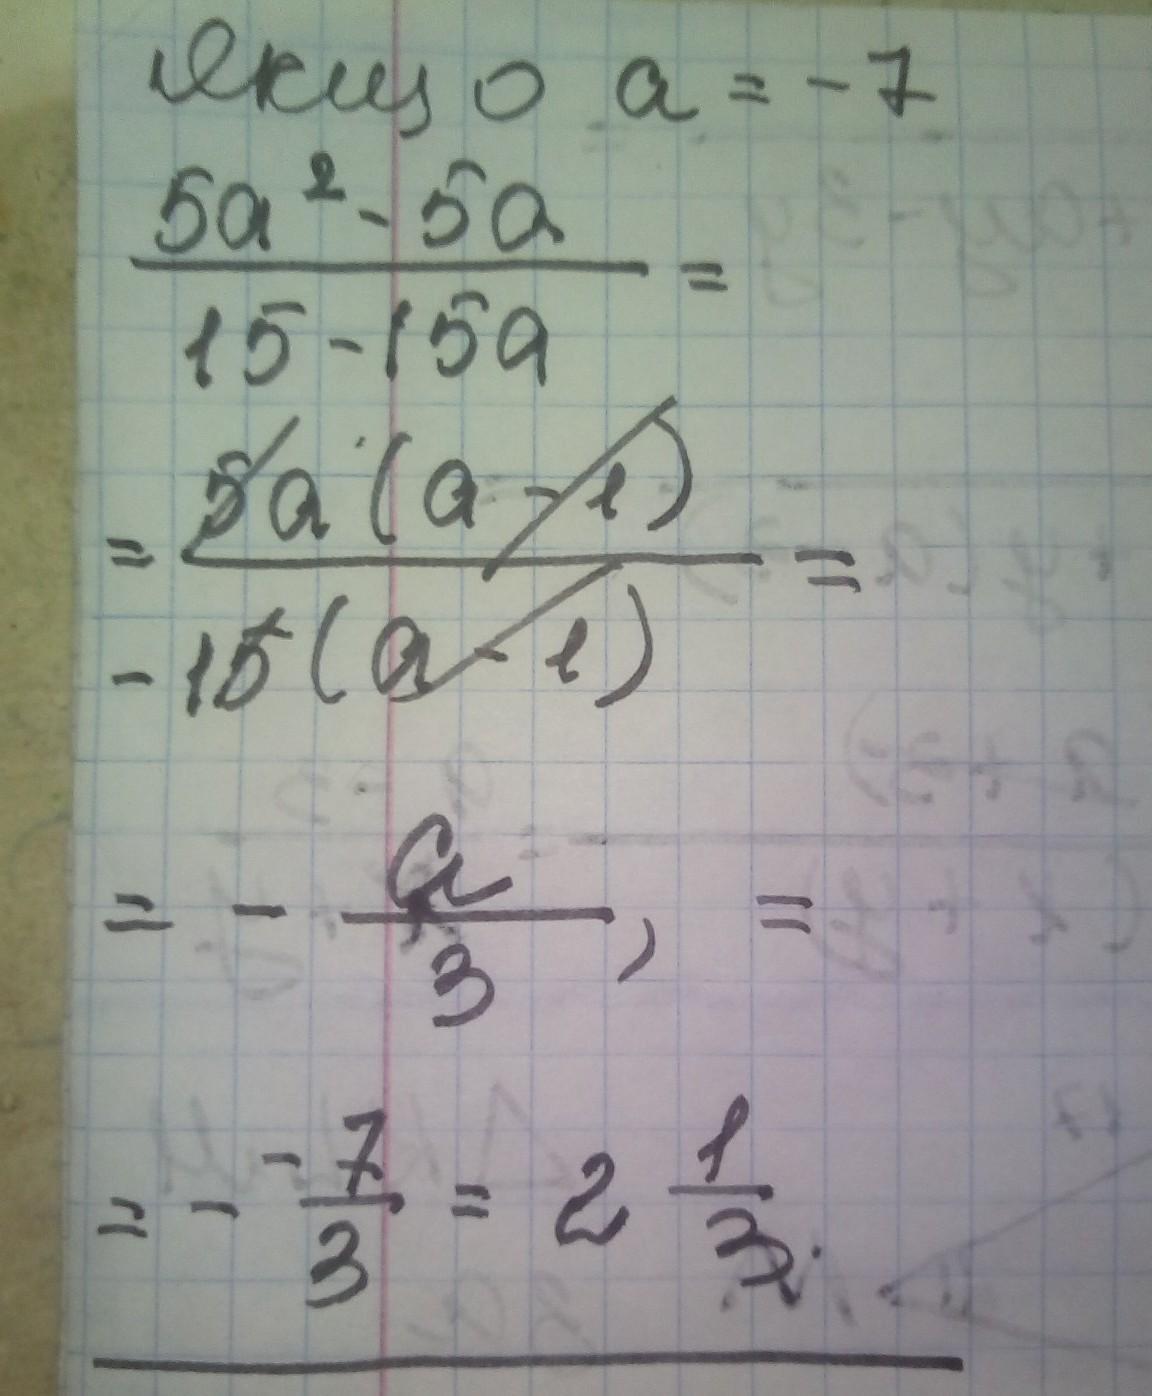 Якщо a = -7
5a² - 5a
15 - 15a
=
= 5a (a - 1)
-15 (a - 1)
=
= - a
3
, =
= - -7
3
= 2 1
3